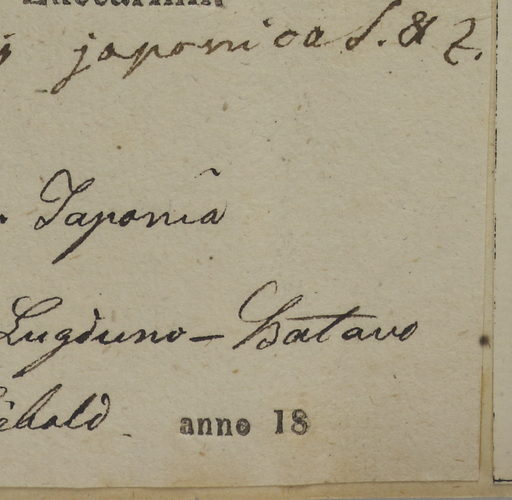 japonica S. & Z.
Japoniâ
Lugduno-Batavo
anno 18